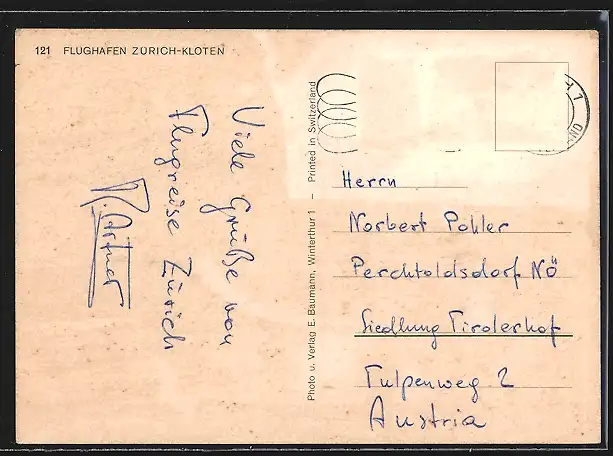 121 FLUGHAFEN ZÜRICH-KLOTEN
Viele Grüße von
Flugreise Zürich
Photo u. Verlag E. Baumann, Winterthur 1 – Printed in Switzerland
Herrn
Norbert Pohler
Perchtoldsdorf NÖ
Siedlung Tirolerhof
Tulpenweg 2
Austria